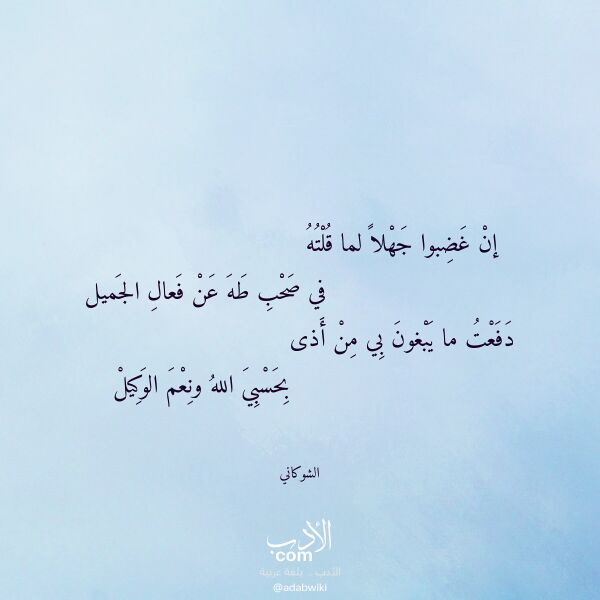 إنْ غَضِبوا جَهْلاً لما قُلْتُهُ
في صَحْبِ طَهَ عَنْ فَعالِ الجَميل
دَفَعْتُ ما يَبْغونَ بِي مِنْ أَذى
بِحَسْبِيَ اللهُ ونِعْمَ الوَكِيلْ
الشوكاني
الأدب
com
الأدب .. بلغة عربية
@adabwiki